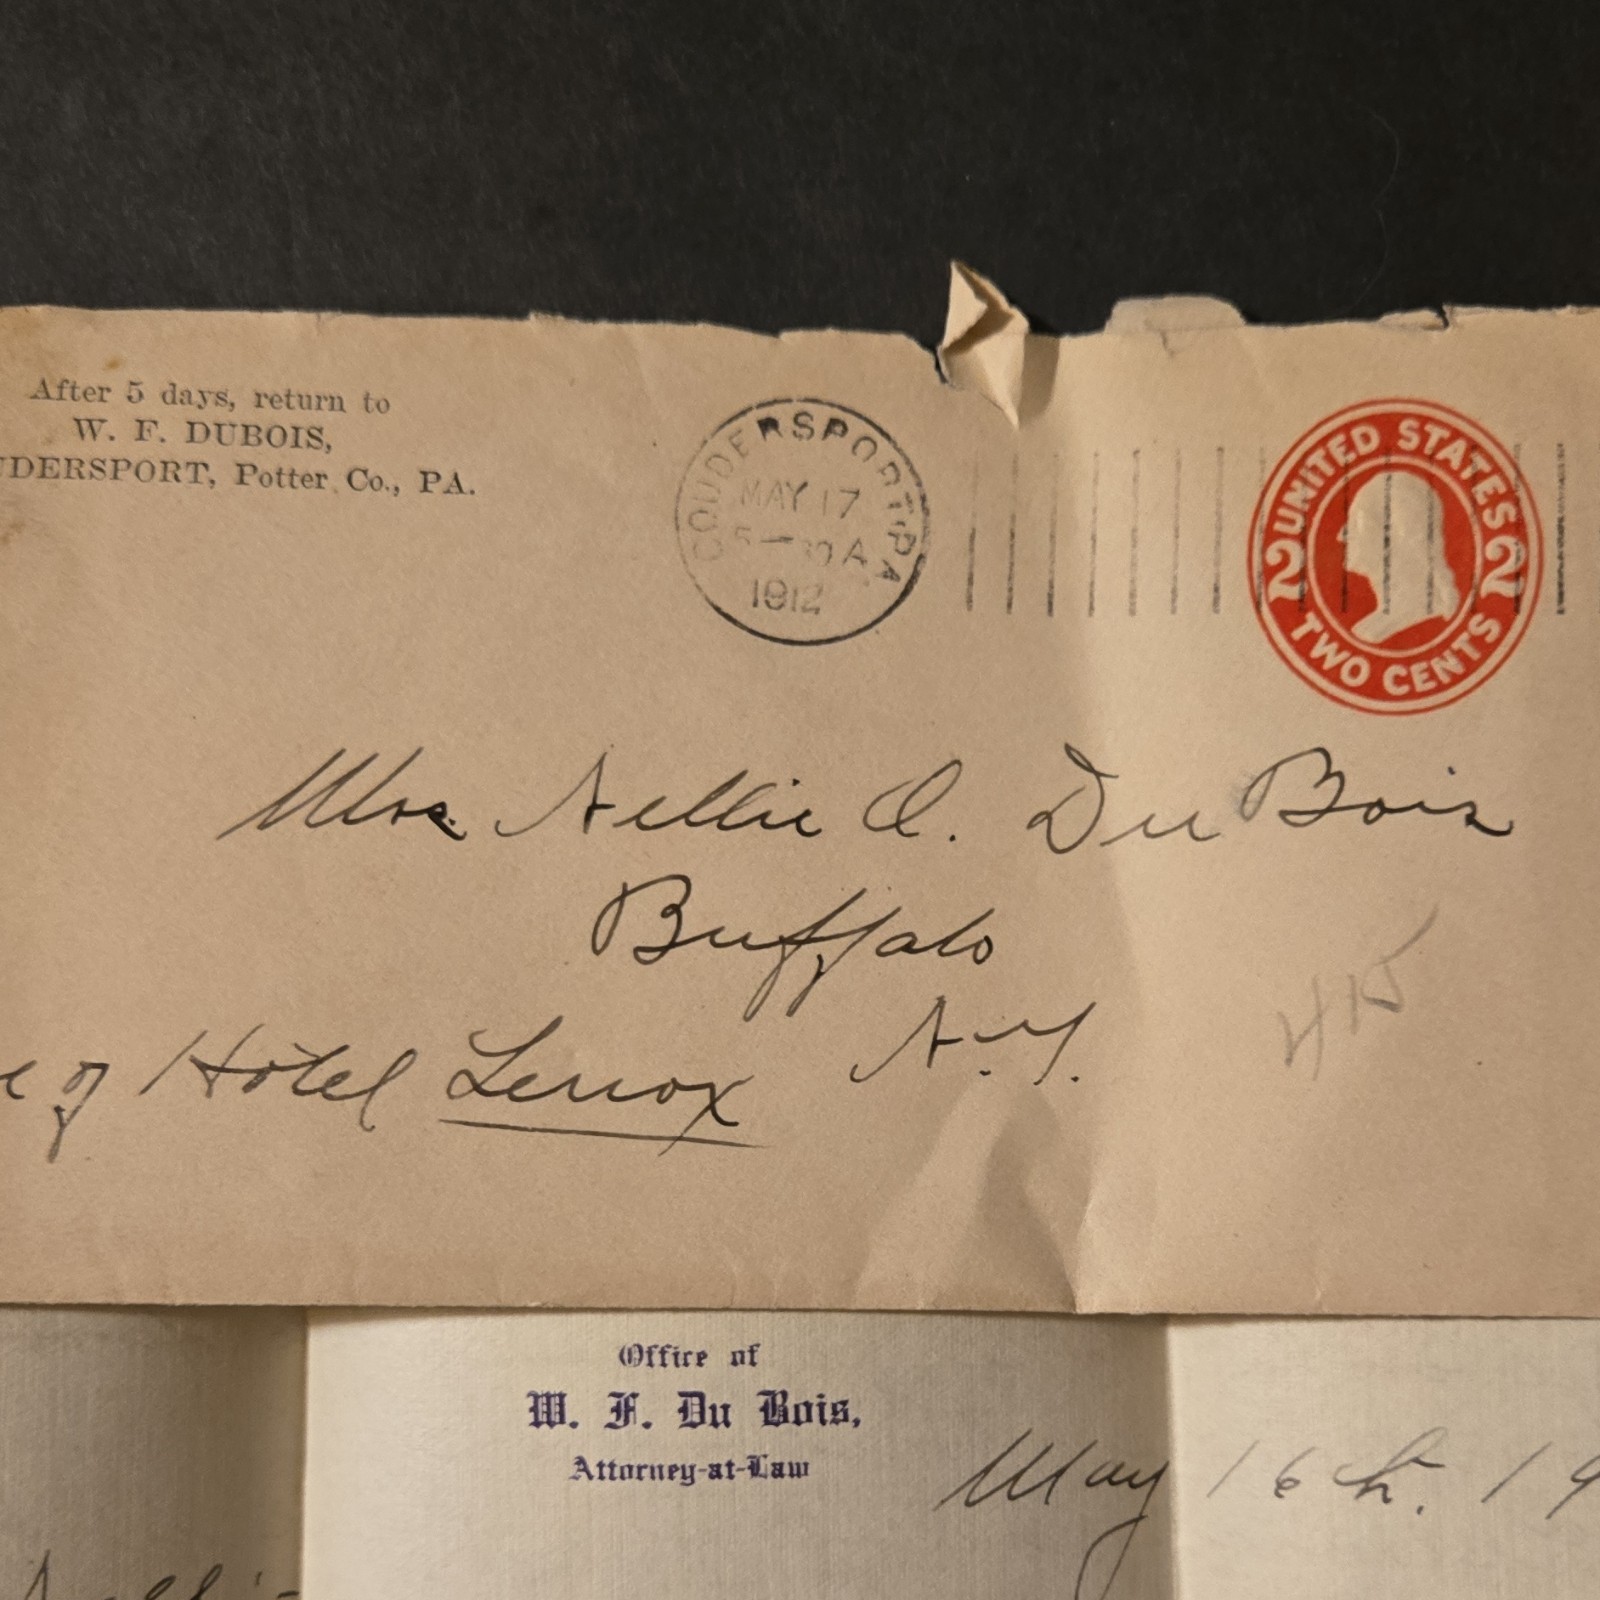 After 5 days, return to
W. F. DUBOIS,
UDERSPORT, Potter Co., PA.
COUDERSPORT, PA
MAY 17
5-30 A
1912
UNITED STATES
2 2
TWO CENTS
Mrs. Nellie O. Du Bois
Buffalo
N.Y.
e of Hotel Lenox
415
Office of
W. F. Du Bois,
Attorney-at-Law
May 16th. 19
Nellie